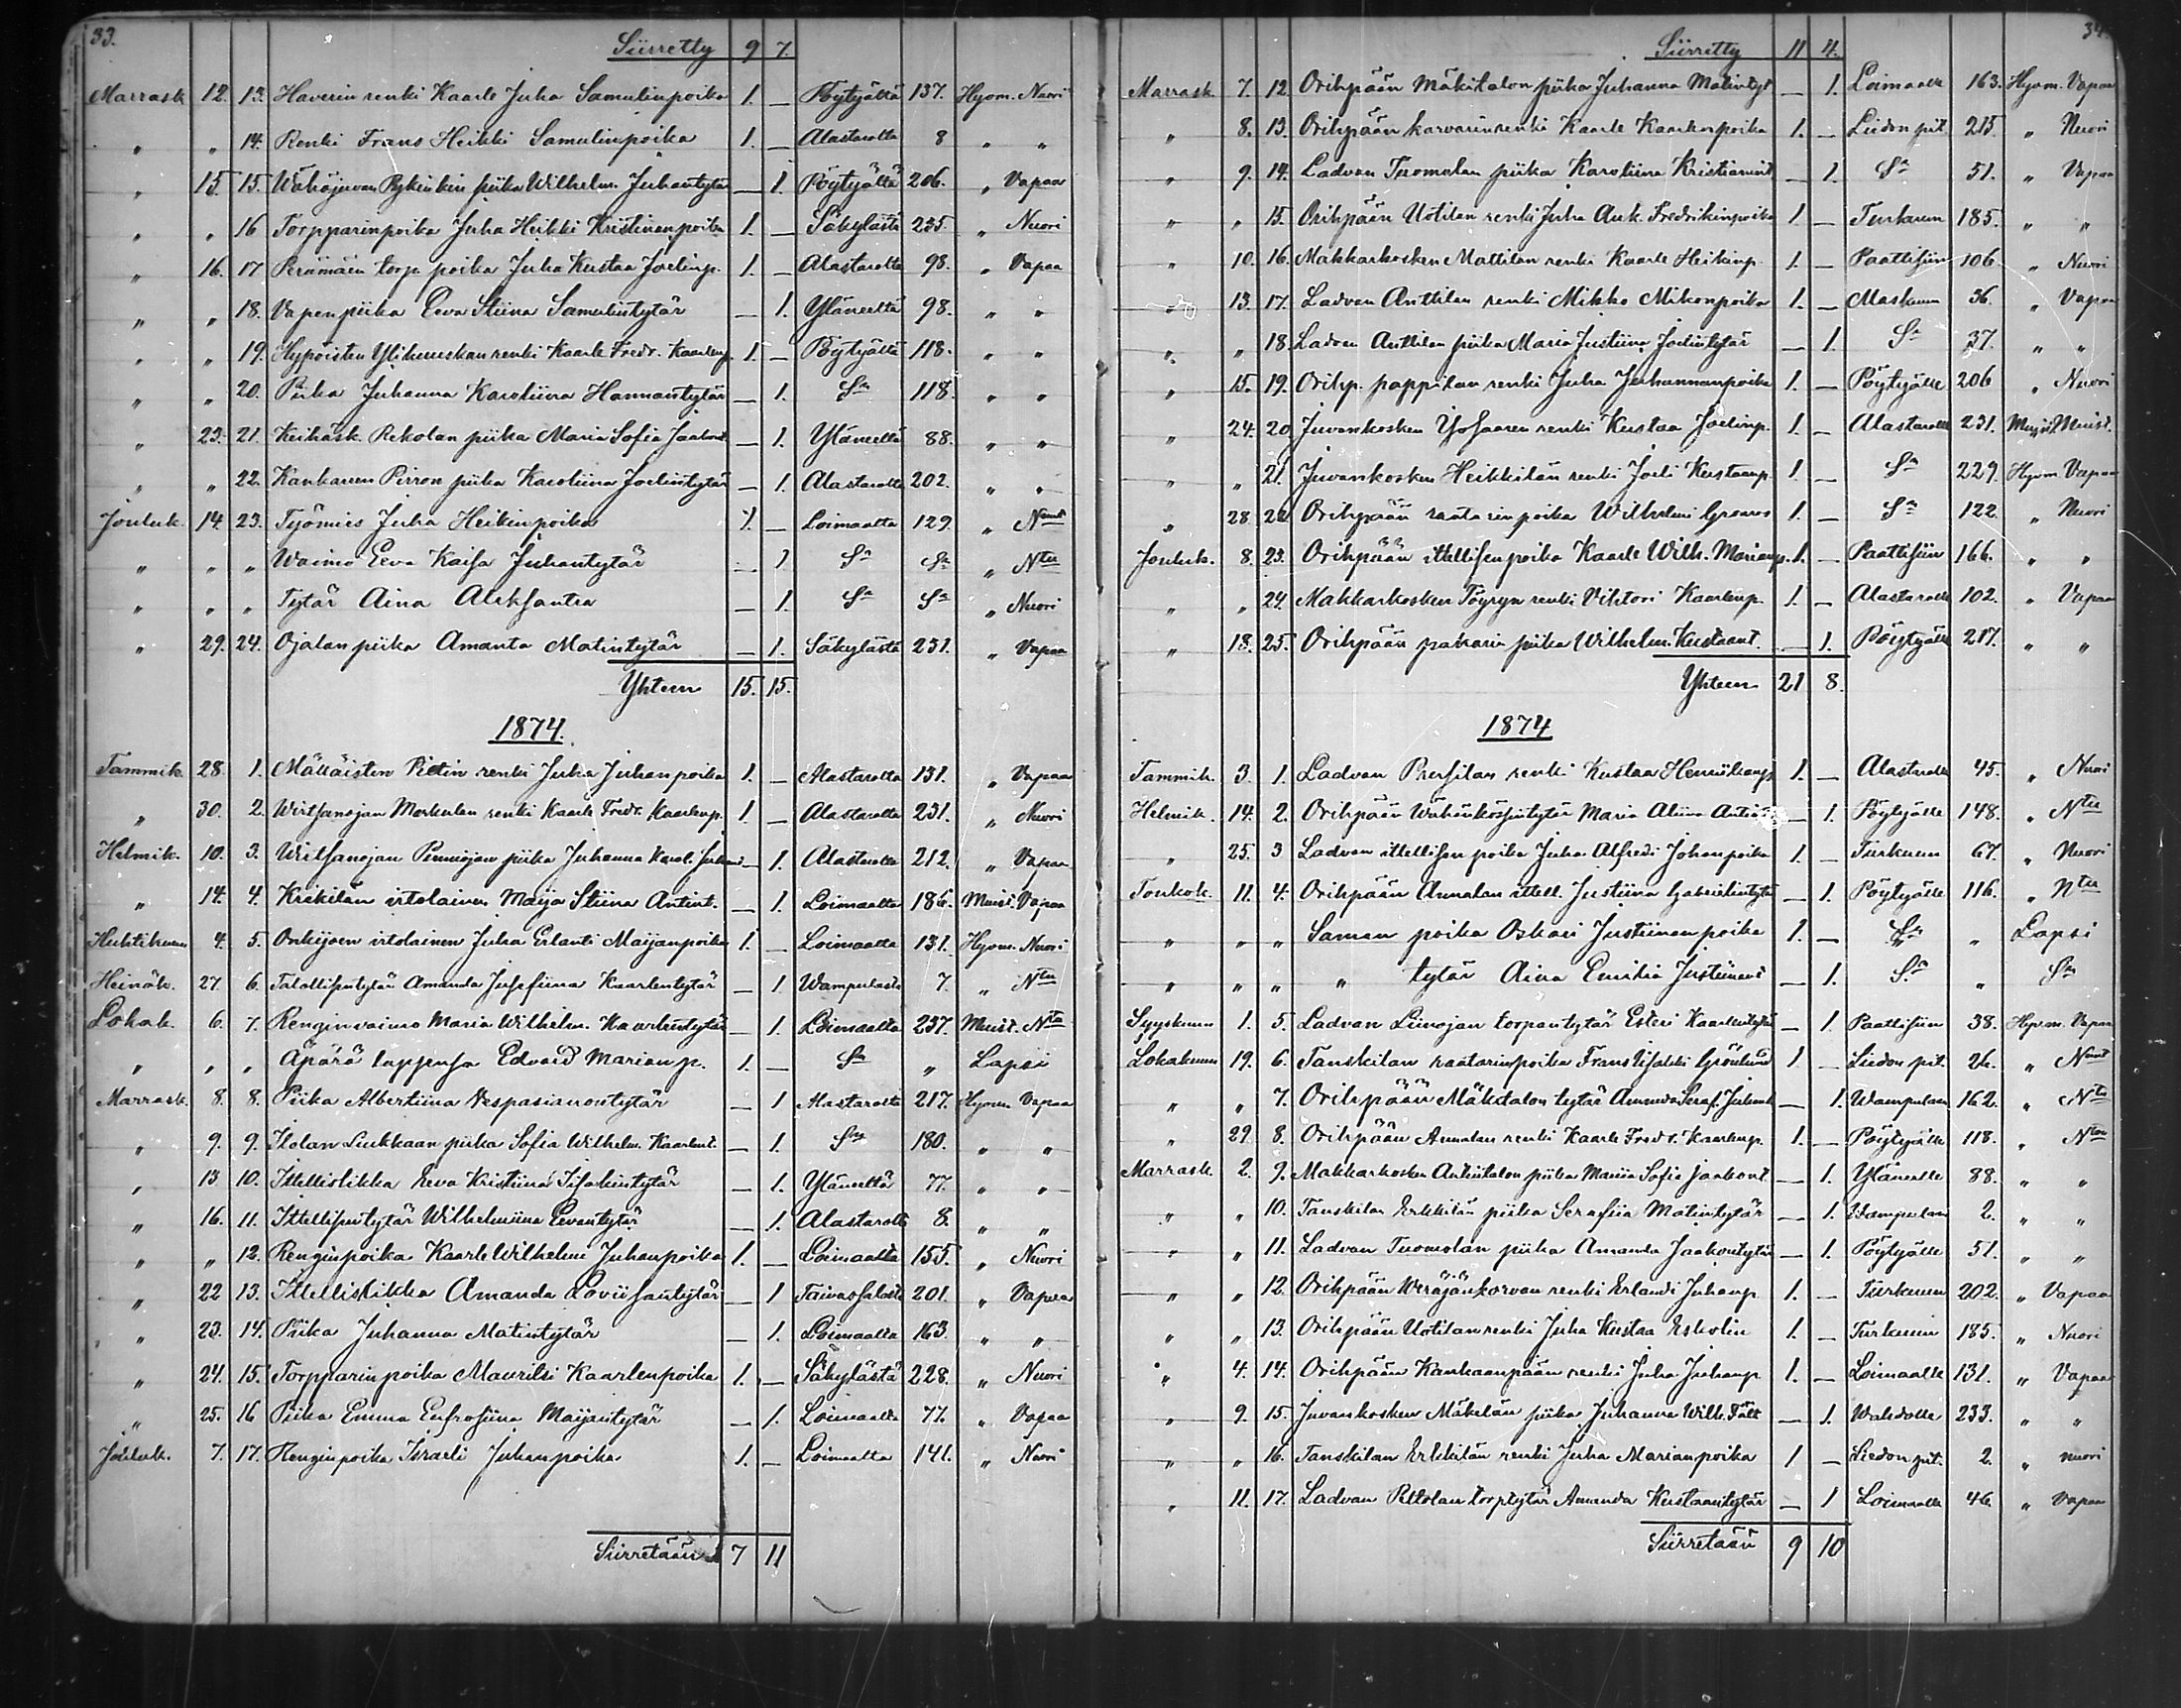 33.
Siirretty 9 7.
Marrask. 12. 13. Haverin renki Kaarle Juha Samulinpoika 1. — Pöytyältä 137. Hyvm. Nuori
„ „ 14. Renki Frans Heikki Samulinpoika 1. — Alastarolta 8 „ „
„ 15. 15. Wähäjuvan piika Wilhelm. Juhantytär — 1. Pöytyältä 206. „ Vapaa
„ „ 16 Torpparinpoika Juha Heikki Kristiinanpoika 1. — Säkylästä 235. „ Nuori
„ 16. 17 Perämäen torp. poika Juha Kustaa Joelinp. 1. — Alastarolta 98. „ Vapaa
„ „ 18. Vapen piika Eeva Stiina Samulintytär — 1. Yläneeltä 98. „ „
„ „ 19. Hypöisten renki Kaarle Fredr. Kaarlenp. 1. — Pöytyältä 118. „ „
„ „ 20. Piika Juhanna Karoliina Hannantytär — 1. Sa 118. „ „
„ 23. 21. Keihäsk. Rekolan piika Maria Sofia Jaakont. — 1. Yläneeltä 88. „ „
„ „ 22. Kankaren Pirron piika Karoliina Joelintytär — 1. Alastarolta 202. „ „
Jouluk. 14. 23. Työmies Juha Heikinpoika 1. — Loimaalta 129. „ Naint
„ „ „ Waimo Eeva Kaisa Juhantytär — 1 Sa Sa „ Ntu
„ „ „ Tytär Aina Aleksantra — 1. Sa Sa „ Nuori
„ 29. 24. Ojalan piika Amanta Matintytär — 1. Säkylästä 231. „ Vapaa
Yhteen 15. 15.
1874.
Tammik. 28. 1. Mälläisten Pietin renki Juha Juhanpoika 1. — Alastarolta 131. „ Vapaa
„ 30. 2. Wirtsanojan Markulan renki Kaarle Fredr. Kaarlenp. 1. — Alastarolta 231. „ Nuori
Helmik. 10. 3. Wirtsanojan piika Juhanna Karol. — 1. Alastarolta 212. „ Vapaa
„ 14. 4. Krikilän irtolainen Maija Stiina Antint. — 1. Loimaalta 186. Muist. Vapaa
Huhtikuun 4. 5. Onkijoen irtolainen Juha Erlanti Maijanpoika 1. — Loimaalta 131. Hyvm. Nuori
Heinäk. 27. 6. Talollisentytär Amanda Josefiina Kaarlentytär — 1. Wampulasta 7. „ Ntu
Lokak. 6. 7. Renginvaimo Maria Wilhelm. Kaarlentytär — 1. Loimaalta 237. Muist. Nta
„ „ „ Äpärä lapsensa Edvard Marianp. 1. — Sa „ Lapsi
Marrask. 8. 8. Piika Albertiina Vespasianontytär — 1 Alastarolta 217. Hyvm. Vapaa
„ 9. 9. Isolan Liukkaan piika Sofia Wilhelm. Kaarlent. — 1. Sa 180. „ „
„ 13 10. Itellistikka Eeva Kristiina Isakintytär — 1. Yläneeltä 77. „ „
„ 16. 11. Itellisentytär Wilhelmiina Eevantytär — 1. Alastarolta 8. „ „
„ „ 12. Renginpoika Kaarle Wilhelmi Juhanpoika 1. — Loimaalta 155. „ Nuori
„ 22 13. Itellistikka Amanda Loviisantytär — 1 Taivassalosta 201. „ Vapaa
„ 23. 14. Piika Juhanna Matintytär — 1. Loimaalta 163. „ „
„ 24. 15. Torpparinpoika Mauritsi Kaarlenpoika 1. — Säkylästä 228. „ Nuori
„ 25. 16 Piika Emma Eufrosiina Maijantytär — 1. Loimaalta 77. „ Vapaa
Jouluk. 7. 17. Renginpoika Israeli Juhanpoika 1. — Loimaalta 141. „ Nuori
Siirretään 7 11
34.
Siirretty 11 4.
Marrask. 7. 12. Orihpään Mäkitalon piika Juhanna Matintyt. — 1. Loimaalle 163. Hyvm. Vapaa
„ 8. 13. Orihpään karvarin renki Kaarle Kaarlonpoika 1. — Liedon pit. 215. „ Nuori
„ 9. 14. Ladvan Tuomolan piika Karoliina — 1. Sa 51. „ Vapaa
„ „ 15. Orihpään Uotilan renki Juha Auk. Fredrikinpoika 1. — Turkuun 185. „ „
„ 10. 16. Makkarkosken Mattilan renki Kaarle Heikinp. 1. — Paattisiin 106. „ Nuori
„ 13. 17. Ladvan Anttilan renki Mikko Mikonpoika 1. — Maskuun 36. „ Vapaa
„ „ 18. Ladvan Anttilan piika Maria Justiina Joelintytär — 1. Sa 37. „ „
„ 15. 19. Orihp. pappilan renki Juha Juhannanpoika 1. — Pöytyälle 206 „ Nuori
„ 24. 20 Juvankosken Yosaaren renki Kustaa Joelinp. 1. — Alastarolle 231. Muist.
„ „ 21. Juvankosken Heikkilän renki Joeli Kustaanp. 1. — Sa 229. Hyvm Vapaa
„ 28. 22 Orihpään räätärinpoika Wilhelmi Granros 1. — Sa 122. „ Nuori
Jouluk. 8. 23. Orihpään itellisenpoika Kaarle Wilh. Marianp. 1. — Paattisiin 166. „ „
„ „ 24. Makkarkosken Töyryn renki Vihtori Kaarlenp. 1. — Alastarolle 102. „ Vapaa
„ 18. 25. Orihpään pakarin piika Wilhelm. Kustaant. — 1. Pöytyälle 217. „ „
Yhteen 21 8.
1874
Tammik. 3. 1. Ladvan renki Kustaa 1. — Alastarolle 45. „ Nuori
Helmik. 14. 2. Orihpään Maria Aliina — 1. Pöytyälle 148. „ Ntu
„ 25. 3 Ladvan itellisen poika Juha Alfredi Johanpoika 1. — Turkuun 67. „ Nuori
Toukok. 11. 4. Orihpään Annalan itell. Justiina Gabrielintytär — 1. Pöytyälle 116. „ Ntu
„ „ „ Saman poika Oskari Justiinanpoika 1. — Sa „ Lapsi
„ „ „ „ tytär Aina Emilia Justiinant — 1. Sa „ Sa
Syyskuun 1. 5. Ladvan Liinojan torpantytär Esteri Kaarlentytär — 1. Paattisiin 38. Hyvm. Vapaa
Lokakuun 19. 6. Tanskilan räätärinpoika Frans Grönlund 1 — Liedon pit. 26. „ Naint
„ „ 7. Orihpään Mäkitalon tytär Amanda Seraf. Juhant. — 1. Wampulaan 162. „ Ntu
„ 29. 8. Orihpään Annalan renki Kaarle Fredr. Kaarlenp. 1. — Pöytyälle 118. „
Marrask. 2. 9. Makkarkosken Anttitalon piika Maria Sofia Jaakont. — 1. Yläneelle 88. „ „
„ „ 10. Tanskilan Erkkilän piika Serafiia Matintytär — 1. Wampulaan 2. „ „
„ „ 11. Ladvan Tuomolan piika Amanda Jaakontytär — 1. Pöytyälle 51. „ „
„ „ 12. Orihpään Weräjänkorvan renki Erlandi Juhanp. 1. — Turkuun 202. „ Vapaa
„ „ 13. Orihpään Uotilan renki Juha Kustaa Eskolin 1. — Turkuun 185. „ Nuori
„ 4. 14. Orihpään Kankaanpään renki Juha Juhanp. 1. — Loimaalle 131. „ Vapaa
„ 9. 15. Juvankosken Mäkelän piika Juhanna Wilh. Fält — 1. 233. „ „
„ „ 16. Tanskilan Erkkilän renki Juha Marianpoika 1 — Liedon pit. 2. „ nuori
„ 11. 17. Ladvan Peltolan torptytär Amanda Kustaantytär — 1 Loimaalle 46. „ Vapaa
Siirretään 9 10